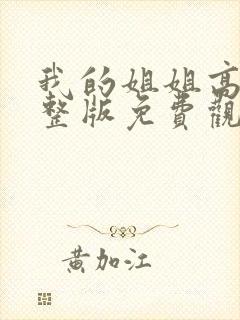 我的姐姐高
整版免費觀
黃加江